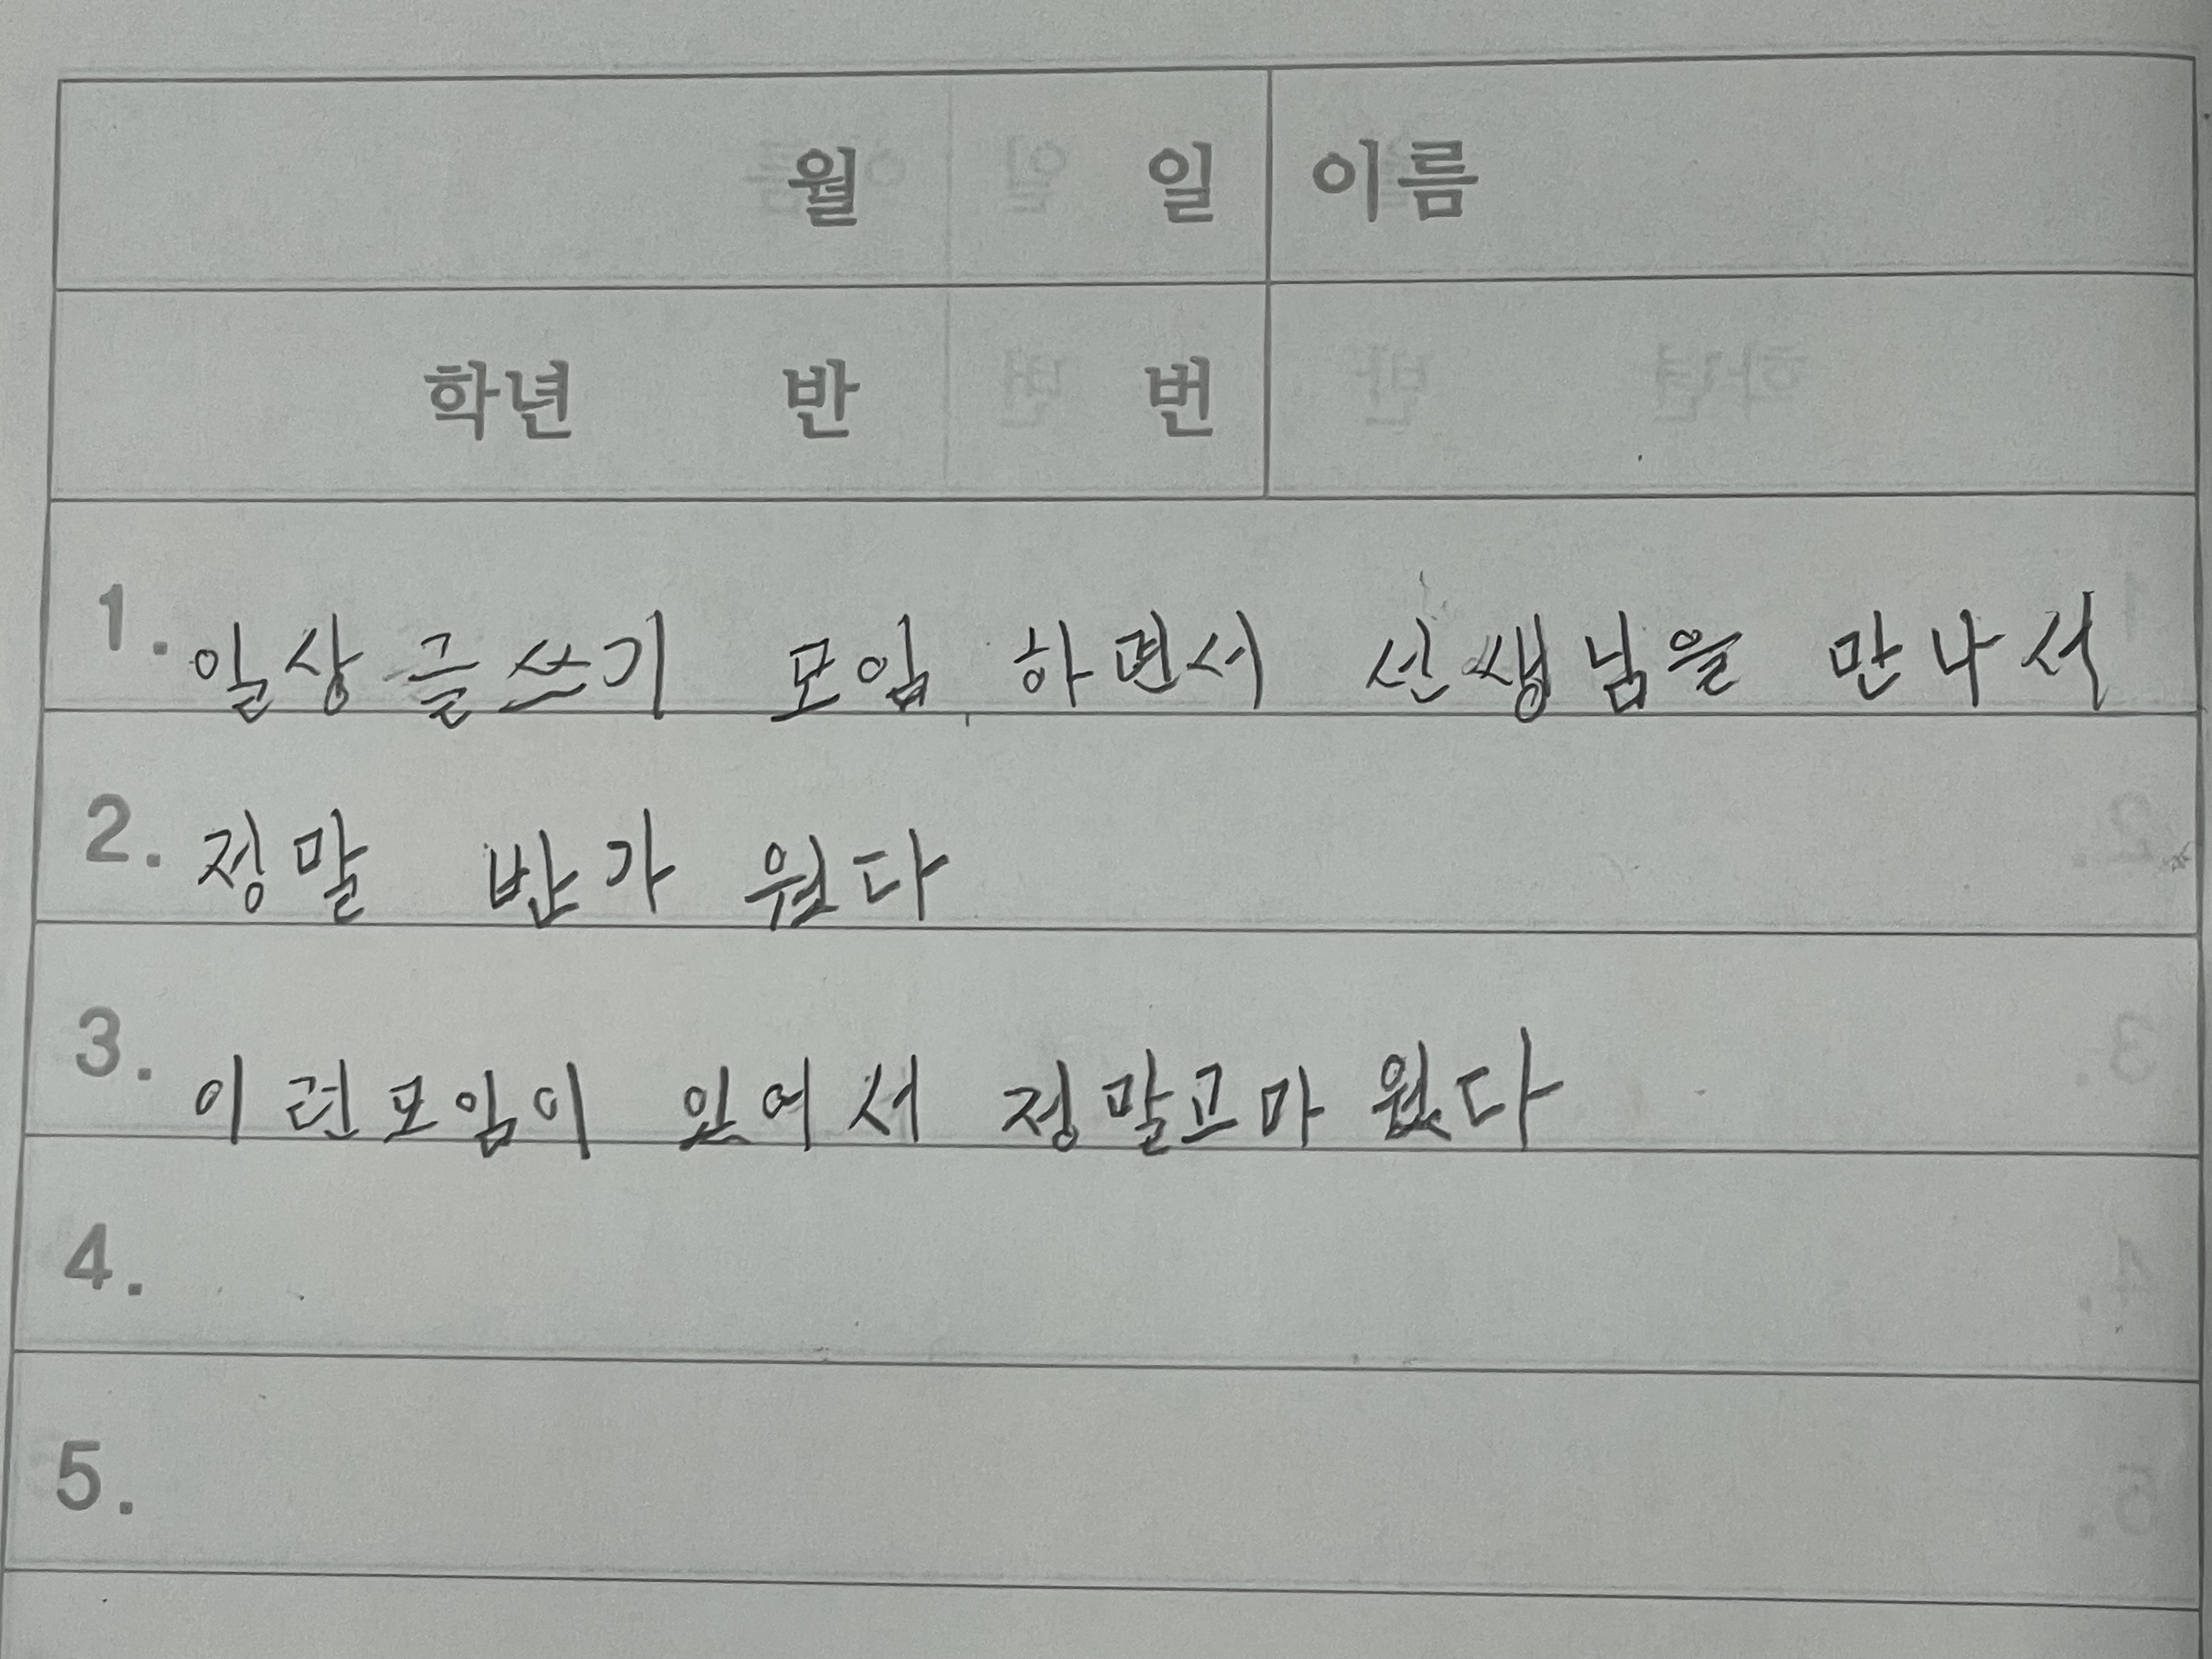 월 일 이름
학년 반 번
1. 일상 글쓰기 모임 하면서 선생님을 만나서
2. 정말 반가 웠다
3. 이런모임이 있어서 정말고마 웠다
4.
5.